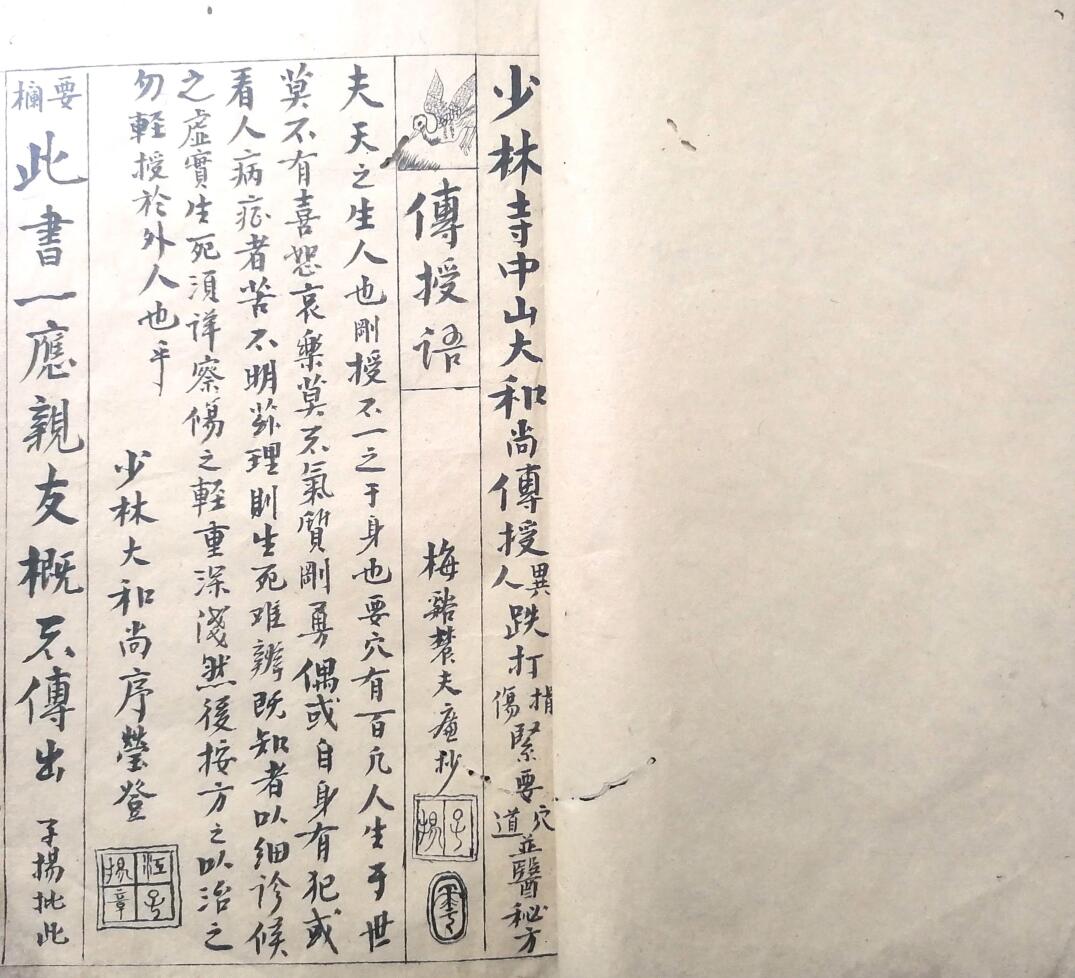 少林寺中山大和尚傳授異人跌打損傷緊要穴道並醫秘方
傳授語
梅谿贊夫廬抄
子揚
夫天之生人也剛授不一之于身也要穴有百凡人生于世
莫不有喜怒哀樂莫不氣質剛勇偶或自身有犯或
看人病症者苦不明茲理則生死难辨既知者以細診候
之虛實生死須详察傷之輕重深淺然後按方之以治之
勿輕授於外人也乎
少林大和尚序瑩登
江子揚章
要欄
此書一應親友概不傳出
子揚批此